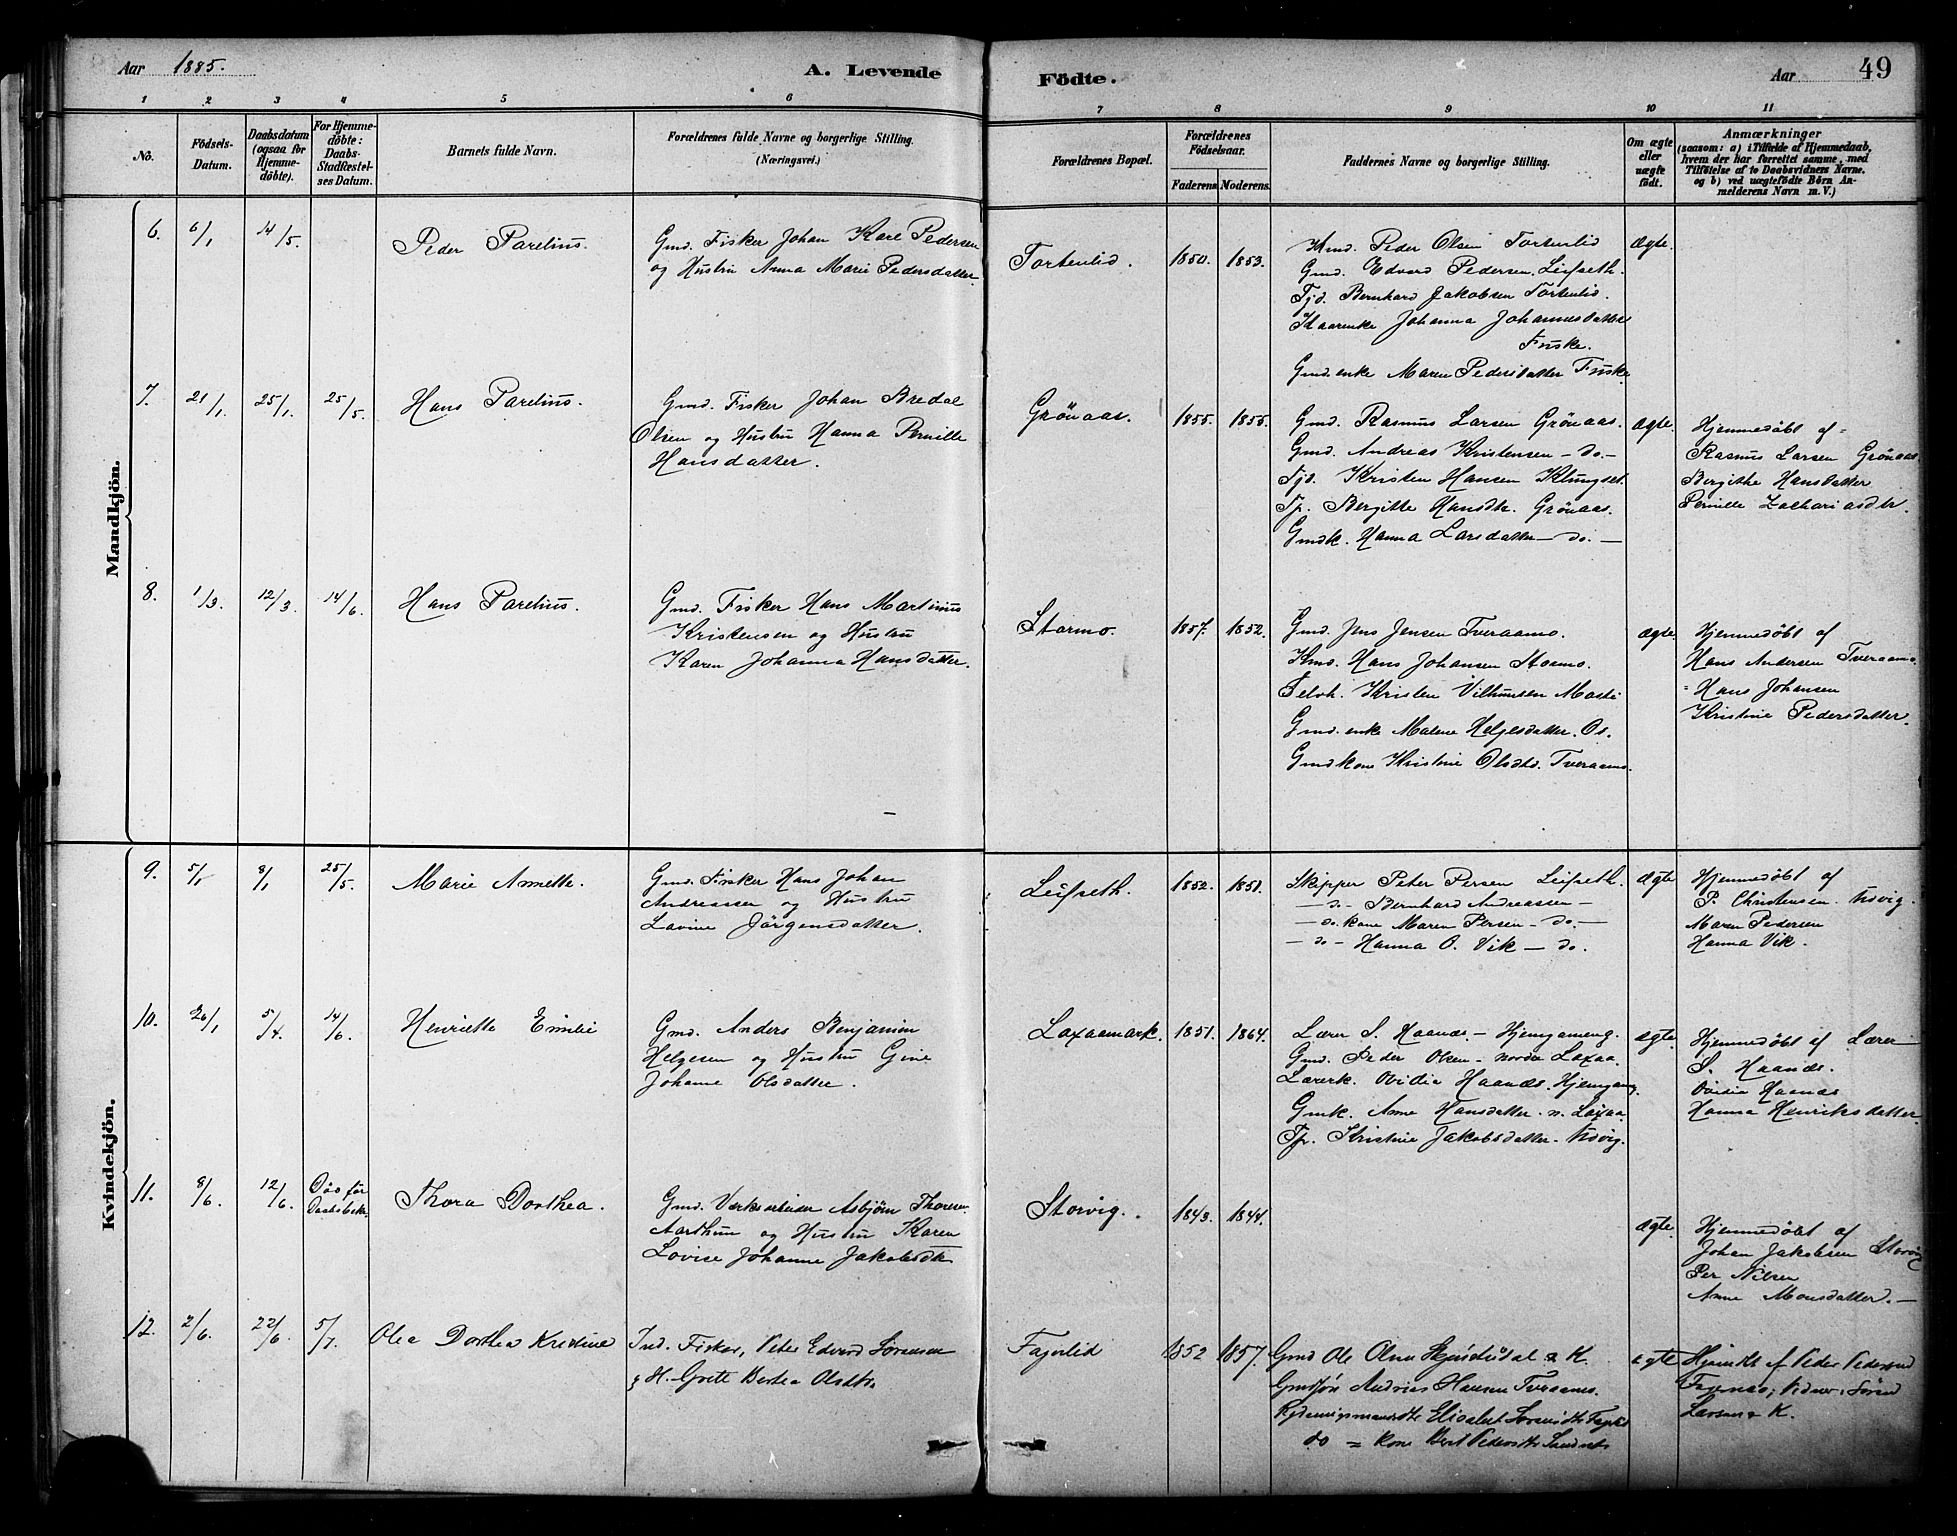 Aar 1885.
A. Levende
Födte.
Aar
49
1 2 3 4 5 6 7 8 9 10 11
No.
Födsels-Datum.
Daabsdatum (ogsaa for Hjemme-döbte).
For Hjemme-döbte: Daabs-Stadfæstel-ses Datum.
Barnets fulde Navn.
Forældrenes fulde Navne og borgerlige Stilling.
(Næringsvei.)
Forældrenes Bopæl.
Forældrenes Födselsaar.
Faderens. Moderens.
Faddernes Navne og borgerlige Stilling.
Om ægte eller uægte födt.
Anmærkninger
(saasom: a) i Tilfælde af Hjemmedaab,
hvem der har forrettet samme, med
Tilföielse af to Daabsvidners Navne,
og b) ved uægtefödte Börn An-
melderens Navn m. V.)
Mandkjön.
6. 6/1 14/5. Peder Parelius.
Gmd. Fisker Johan Karl Pedersen
og Hustru Anna Marie Pedersdatter.
Tortenlid. 1850. 1853.
Kmd. Peder Olsen Tortenlid
Gmd. Edvard Pedersen. Leifseth.
Tjd. Bernhard Jakobsen Tortenlid.
Kaarenke Johanna Johannesdatter
Fuske.
Gmd. enke Maren Pedersdatter Fuske
ægte.
7. 21/1. 25/1. 25/5. Hans Parelius.
Gmd. Fisker Johan Bredal
Olsen og Hustru Hanna Pernille
Hansdatter.
Grönaas. 1855. 1855.
Gmd. Rasmus Larsen Grönaas.
Gmd. Andreas Kristensen – do –
Tjd. Kristen Hansen Klungset.
Tp. Bergitte Hansdtr. Grönaas.
Gmdk. Hanna Larsdatter – do. –
ægte.
Hjemmedöbt af
Rasmus Larsen Grönaas
Bergithe Hansdatter
Pernille Zachariasdtr.
8. 1/3. 12/3 14/6 Hans Parelius.
Gmd. Fisker Hans Martinus
Kristensen og Hustru
Karen Johanna Hansdatter.
Stormo. 1857. 1852.
Gmd. Jens Jensen Tveraamo.
Kmd. Hans Johansen Stormo.
Kristen Vilhumsen
Gmd. enke Malene Helgesdatter. Os.
Gmdkone Kristine Olsdtr. Tveraamo.
ægte
Hjemmedöbt af
Hans Andersen Tveraamo
Hans Johansen
Kristine Pedersdatter.
Kvindekjön.
9. 5/1 8/1 25/5. Marie Annette.
Gmd. Fisker Hans Johan
Andreassen og Hustru
Lavine Jörgensdatter.
Leifseth. 1852. 1851.
Skipper Peter Persen Leifseth.
– do – Bernhard Andreassen –
– do. kone Maren Persen – do –
– do – Hanna O. Vik – do.
ægte
Hjemmedöbt af
P. Christensen. Udvig.
Maren Pedersen
Hanna Vik.
10. 26/1 5/4. 14/6. Henriette Emilie
Gmd. Anders Benjamin
Helgesen og Hustru Gine
Johane Olsdatter.
Laxaamark. 1851. 1864.
Lærer S. Haanæs. – Hjemgameng.
Gmd. Peder Olsen – nordre Laxaa
Lærerk. Ovidia Haanæs. Hjemgam
Gmk. Anne Hansdatter. n. Laxaa
Tp. Kristine Jakobsdatter – Udvig.
ægte.
Hjemmedöbt af Lærer
S. Haanæs.
Ovidia Haanæs
Hanna Henriksdatter.
11. 8/6. 12/6. Död för Daabsbekr. Thora Dorthea.
Gmd. Værksarbeider Asbjörn Thoresen
Aarthun og Hustru Karen
Lovise Johanne Jakobsdtr
Storvig. 1843. 1844.
ægte.
Hjemmedöbt af
Johan Jakobsen Storvig
Per Nilsen
Anne Monsdatter. –
12. 2/6. 22/6. 5/7. Olea Dorthea Kristine
Ind. Fisker, Peter Edvard Sørensen
& H. Grete Berthea Olsdtr
Fagerlid 1852 1857.
Gmd Ole Olsen & K.
Gmdsøn Andrias Hansen Tveraamo.
Elisabet Sørensdtr Faglid
do = kone Berit Pedersdtr
ægte
Hjemdt af Peder Pedersen
Fagernæs; Vidner: Søren
Larsen & K.